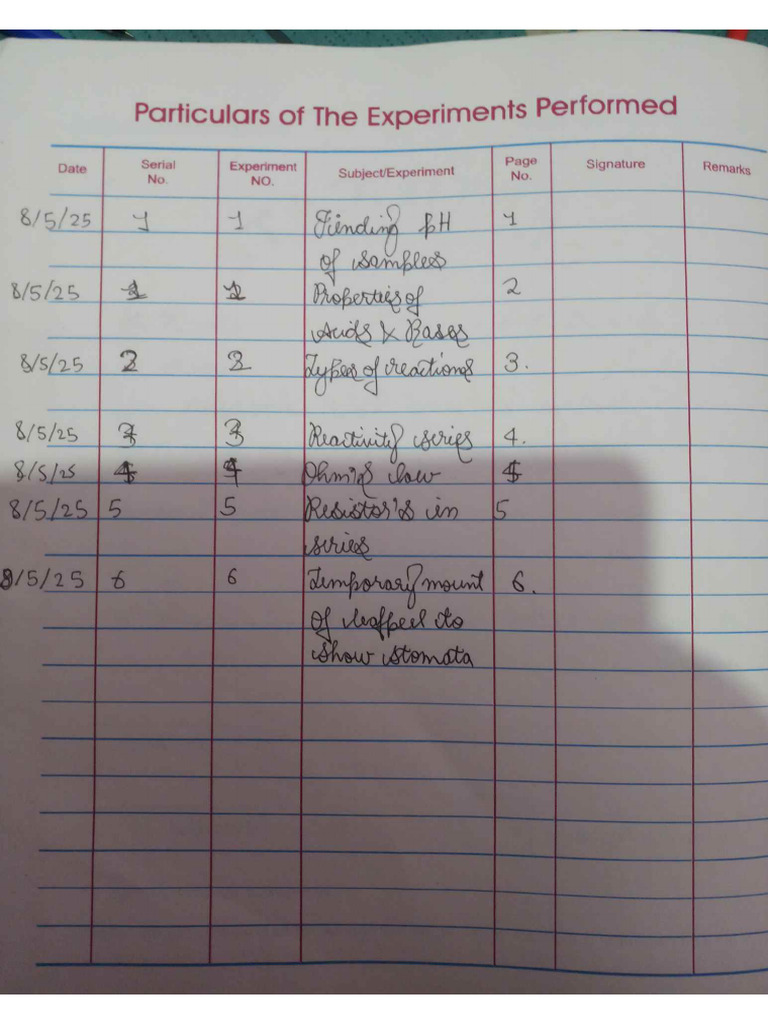 Particulars of The Experiments Performed
Date Serial No. Experiment NO. Subject/Experiment Page No. Signature Remarks
8/5/25 1 1 Finding pH 1
of samples
8/5/25 Properties of 2
Acids & Bases
8/5/25 2 2 Types of reactions 3.
8/5/25 3 3 Reactivity series 4.
8/5/25 4 4 Ohm's law
8/5/25 5 5 Resistor's in 5
series
8/5/25 6 6 Temporary mount 6.
of leafpeel to
show stomata